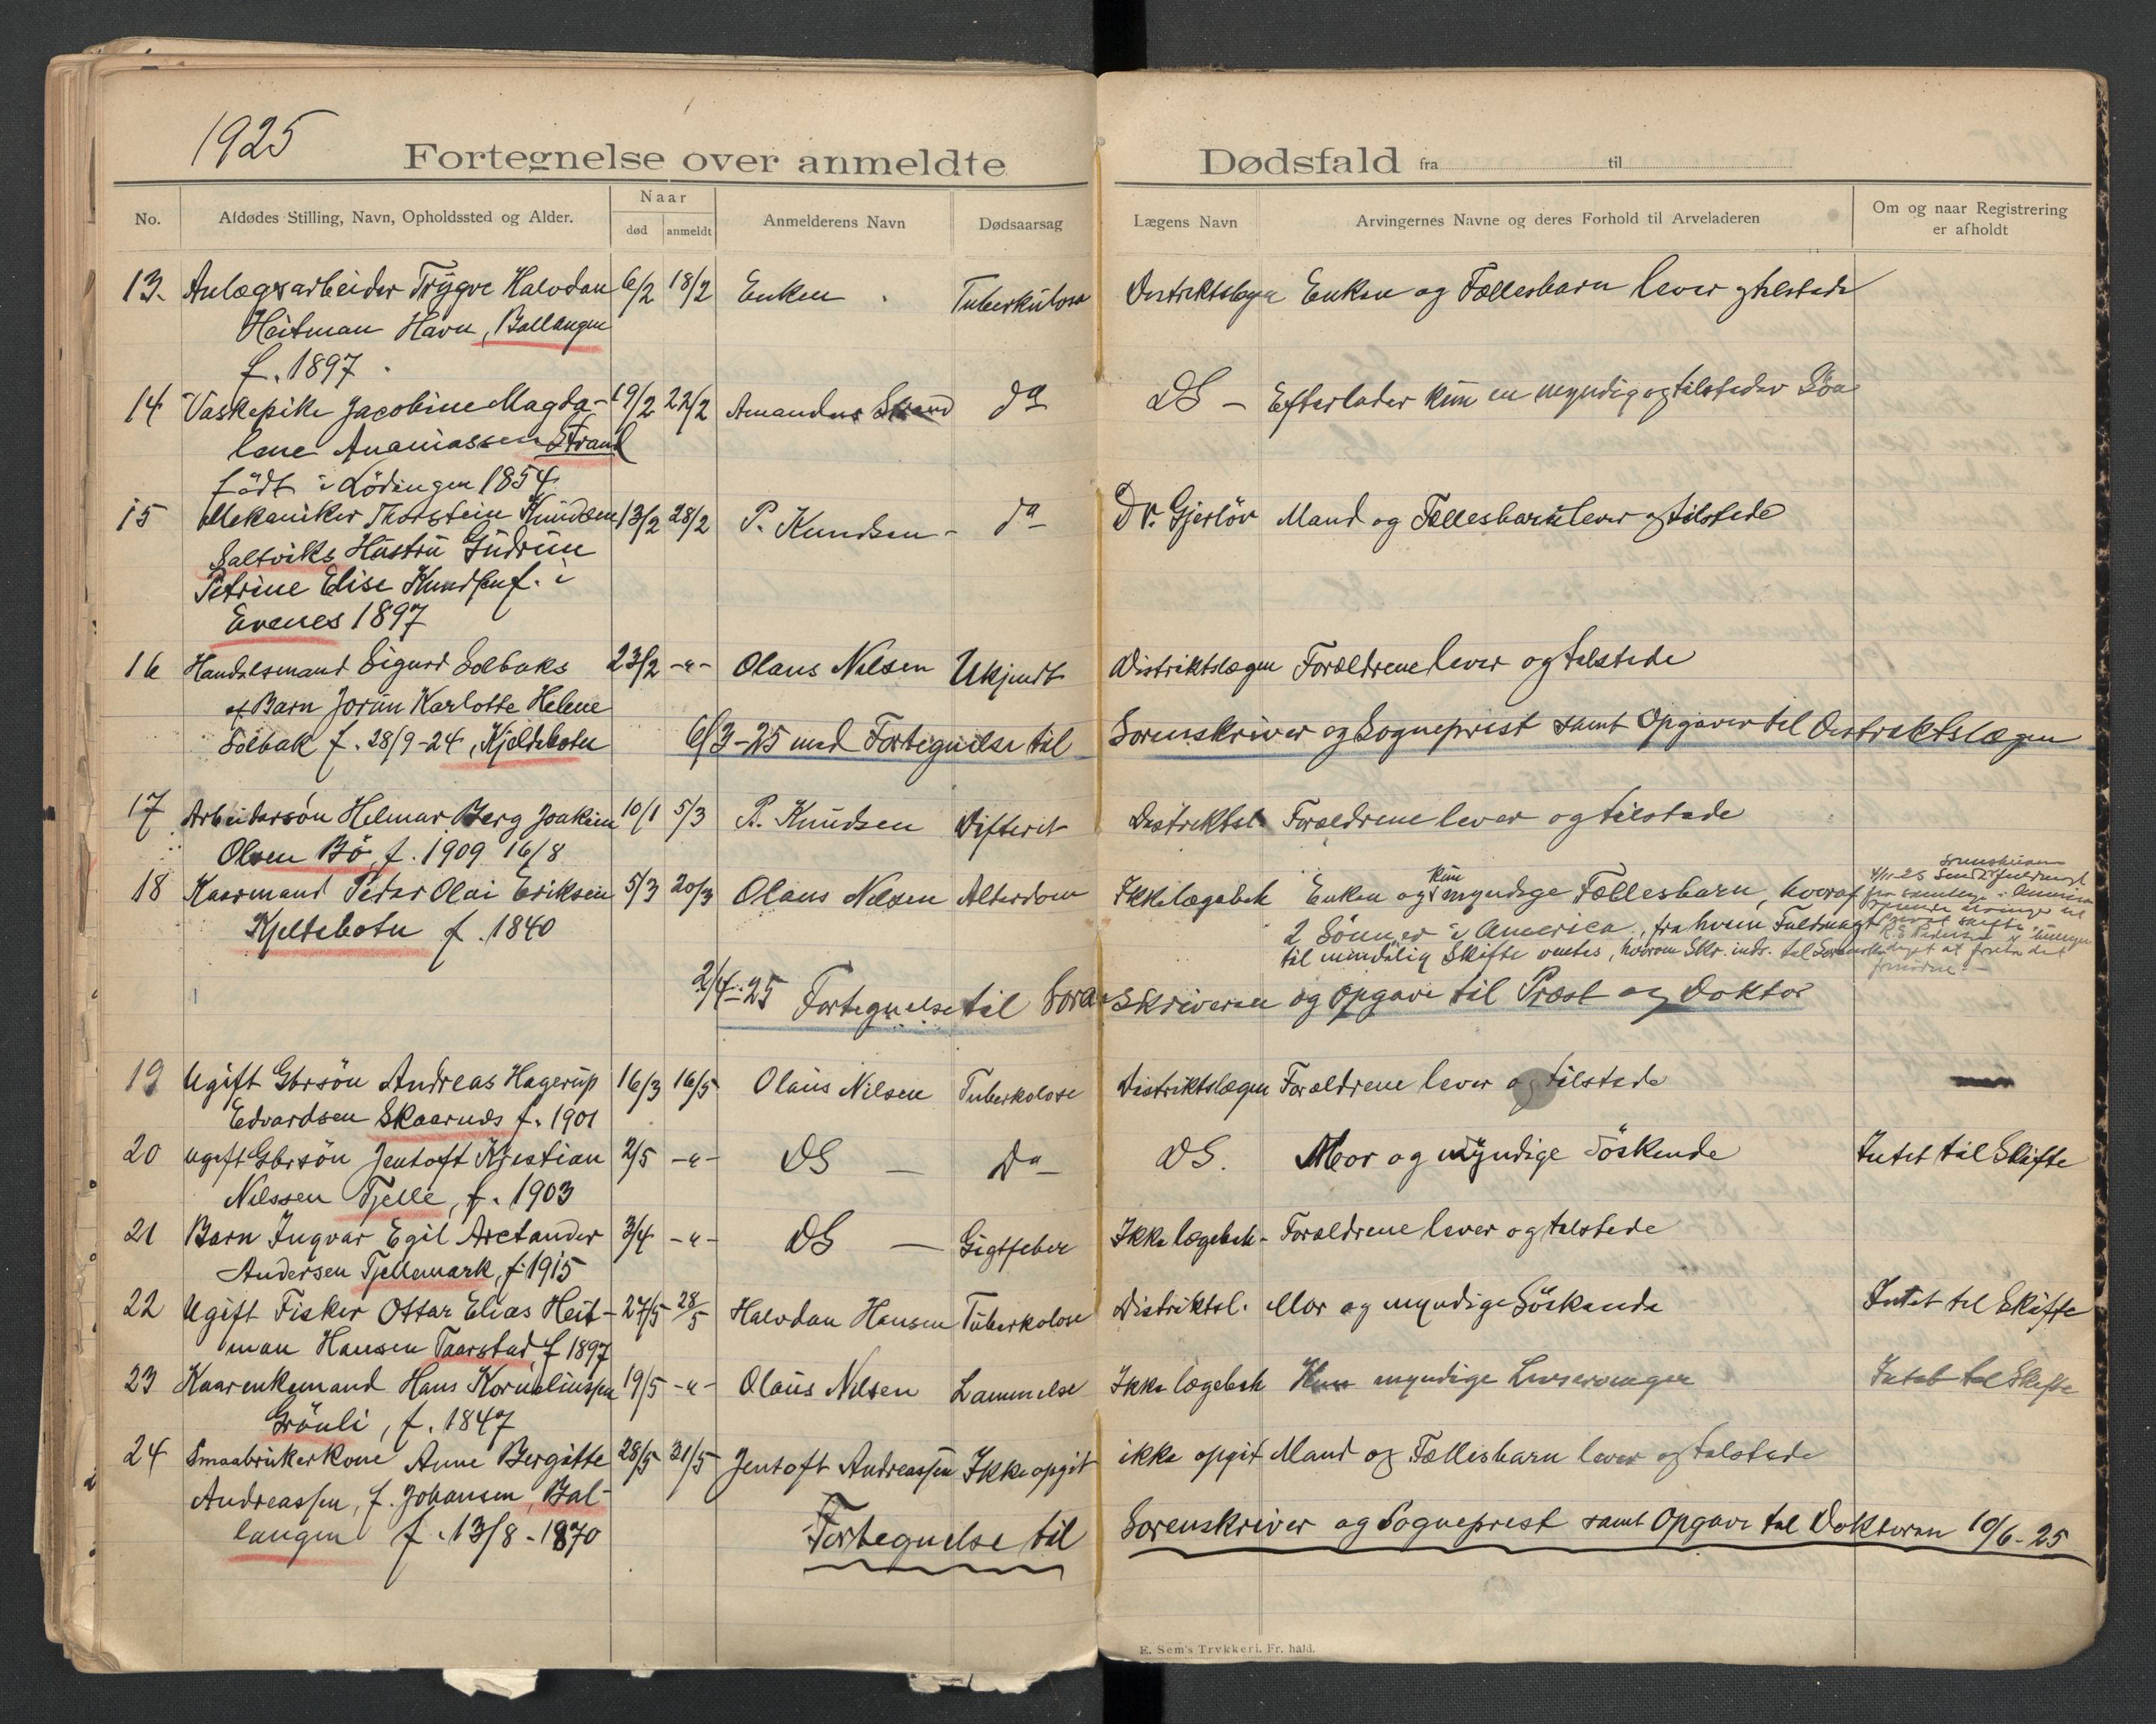 1925
Fortegnelse over anmeldte Dødsfald fra til
No. Afdødes Stilling, Navn, Opholdssted og Alder. Naar død anmeldt Anmelderens Navn Dødsaarsag Lægens Navn Arvingernes Navne og deres Forhold til Arveladeren Om og naar Registrering er afholdt
13. Anlægsarbeider Trygve Halvdan 6/2 18/2 Enken Tuberkulose Enken og Fællesbarn lever og tilstede
Heitman Havn, Ballangen
f. 1897
14 Vaskepike Jacobine Magda- 19/2 22/2 Amandus Strand da DS - Efterlader kun en myndig og tilsteder Søn
lene Ananiassen Strand
födt i Lödingen 1854
15 Mekaniker Thorstein Knudsen 13/2 28/2 P. Knudsen - da Dr. Gjerlöv Mand og Fællesbarn lever og tilstede
Saltviks Hustru Gudrun
Petrine Elise Knudsen f. i
Evenes 1897
16 Handelsmand Sigurd Solbaks 23/2 -"- Olaus Nilsen Ukjendt Distriktslægen Forældrene lever og tilstede
Barn Jorun Karlotte Helene
Solbak f. 28/9-24, Kjeldebotn
6/3-25 med Fortegnelse til Sorenskriver og Sogneprest samt Opgaver til Distriktslægen
17 Arbeidersön Helmar Berg Joakim 10/1 5/3 P. Knudsen Difterit Distriktsl. Forældrene lever og tilstede
Olsen Bö, f. 1909 16/8
18 Kaarmand Peder Olai Eriksen 5/3 20/3 Olaus Nilsen Alterdom Ikke lægebeh Enken og kun myndige Fællesbarn, hvoraf
Kjeldebotn f. 1840
2 Sönner i America, fra hvem Fuldmagt
til mindelig Skifte ventes, hvorom Skr. inds. til
2/4-25 Fortegnelse til Sorenskriveren og opgave til Prest og Doktor
19 Ugift Gbrsön Andreas Hagerup 16/3 16/5 Olaus Nilsen Tuberkolose Distriktslægen Forældrene lever og tilstede
Edvardsen Skaarnes f. 1901
20 ugift Gbrsön Jentoft Kristian 2/5 -"- DS - Da - DS. Mor og myndige Söskende Intet til Skifte
Nilssen Tjelle, f. 1903
21 Barn Ingvar Egil Arctander 3/4 -"- DS - Gigtfeber Ikke lægebeh - Forældrene lever og tilstede
Andersen Tjellemark, f. 1915
22 Ugift Fisker Ottar Elias Heit- 27/5 28/5 Halvdan Hansen Tuberkolose Distriktsl. Mor og myndige Söskende Intet til Skifte
man Hansen Taarstad f 1897
23 Hans Korneliussen 19/5 -"- Olaus Nilsen Lammelse Ikke lægebeh Kun myndige Livsarvinger Intet til Skifte
Grönli, f. 1847
24 Smaabrukerkone Anne Bergitte 28/5 31/5 Jentoft Andreassen Ikke opgit ikke opgit Mand og Fællesbarn lever og tilstede
Andreassen, f. Johansen, Bal-
langen f. 13/8-1870
Fortegnelse til Sorenskriver og Sogneprest samt Opgave til Doktoren 10/6-25
E. Sem's Trykkeri. Fr. hald.